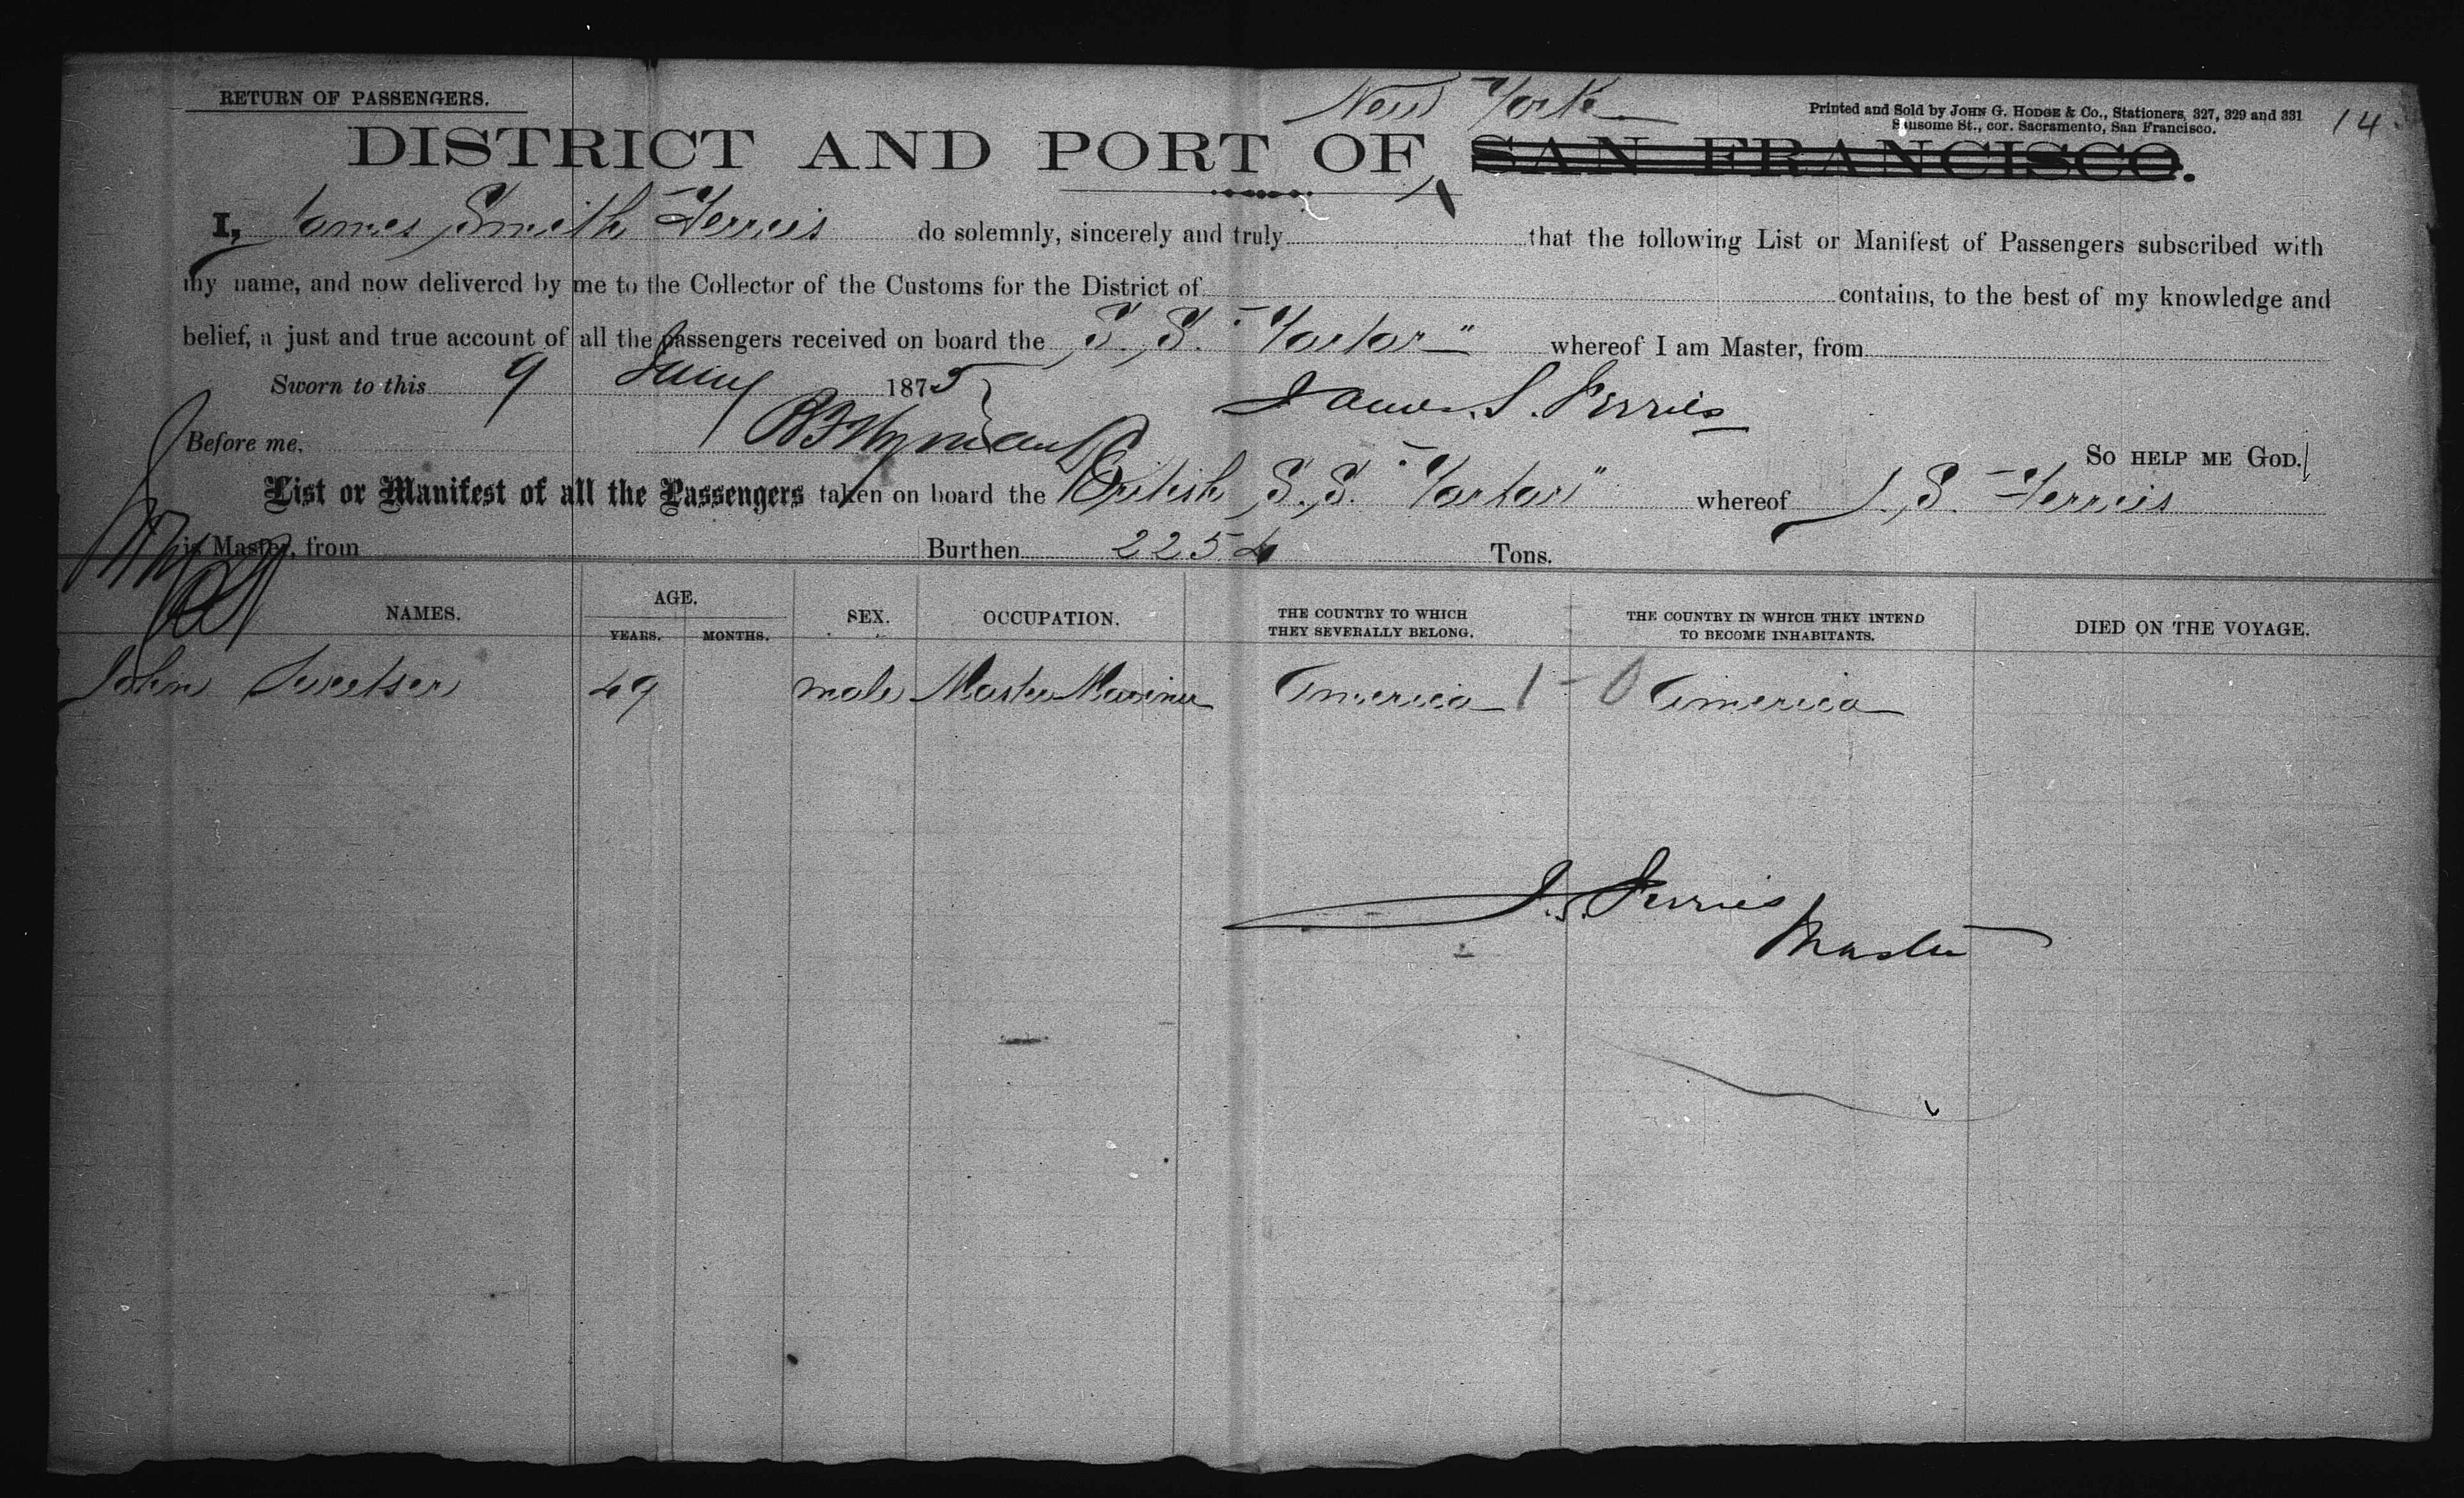 RETURN OF PASSENGERS.
New York
Printed and Sold by JOHN G. HODGE & Co., Stationers, 327, 329 and 331
Sansome St., cor. Sacramento, San Francisco.
14
DISTRICT AND PORT OF SAN FRANCISCO.
I, James Smith Ferries do solemnly, sincerely and truly that the following List or Manifest of Passengers subscribed with
my name, and now delivered by me to the Collector of the Customs for the District of contains, to the best of my knowledge and
belief, a just and true account of all the Passengers received on board the S. S. "Tartar" whereof I am Master, from
Sworn to this 9 Jany 1875
James S. Ferries
Before me,
SO HELP ME GOD.
List or Manifest of all the Passengers taken on board the British S. S. "Tartar" whereof J. S. Ferries
is Master, from Burthen 2254 Tons.
NAMES. AGE. SEX. OCCUPATION. THE COUNTRY TO WHICH THEY SEVERALLY BELONG. THE COUNTRY IN WHICH THEY INTEND TO BECOME INHABITANTS. DIED ON THE VOYAGE.
YEARS. MONTHS.
John Sweetser 49 male Master Mariner America 1-0 America
J. S. Ferries
Master